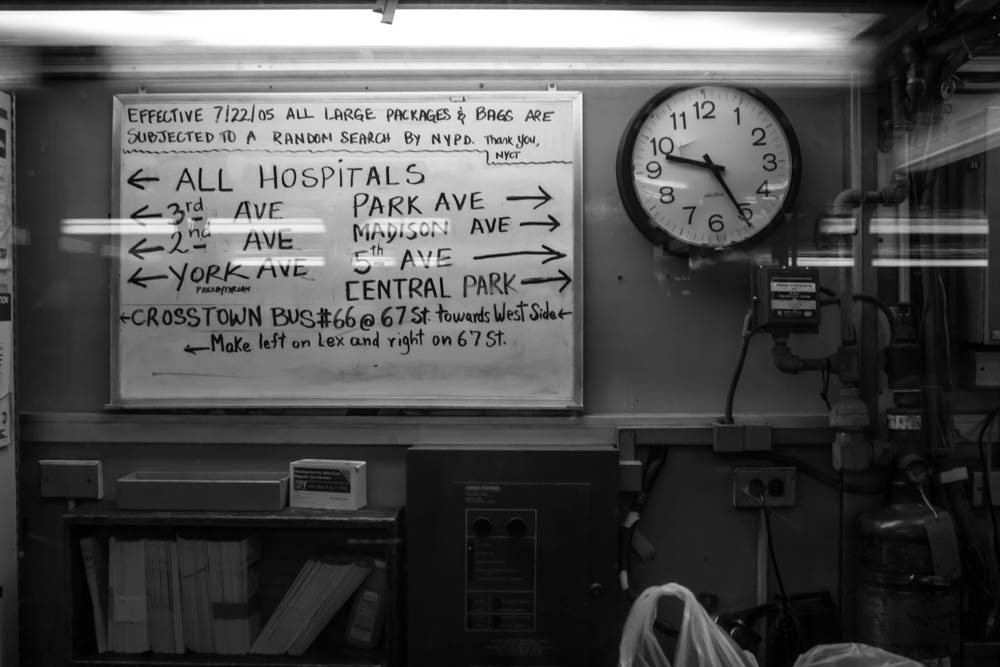 EFFECTIVE 7/22/05 ALL LARGE PACKAGES & BAGS ARE
SUBJECTED TO A RANDOM SEARCH BY NYPD. Thank you,
NYCT
← ALL HOSPITALS
← 3rd AVE
← 2nd AVE
← YORK AVE
PRESBYTERIAN
PARK AVE →
MADISON AVE →
5th AVE →
CENTRAL PARK →
←CROSSTOWN BUS #66 @ 67 St. towards West Side←
←Make left on Lex and right on 67 St.
12
1
2
3
4
5
6
7
8
9
10
11